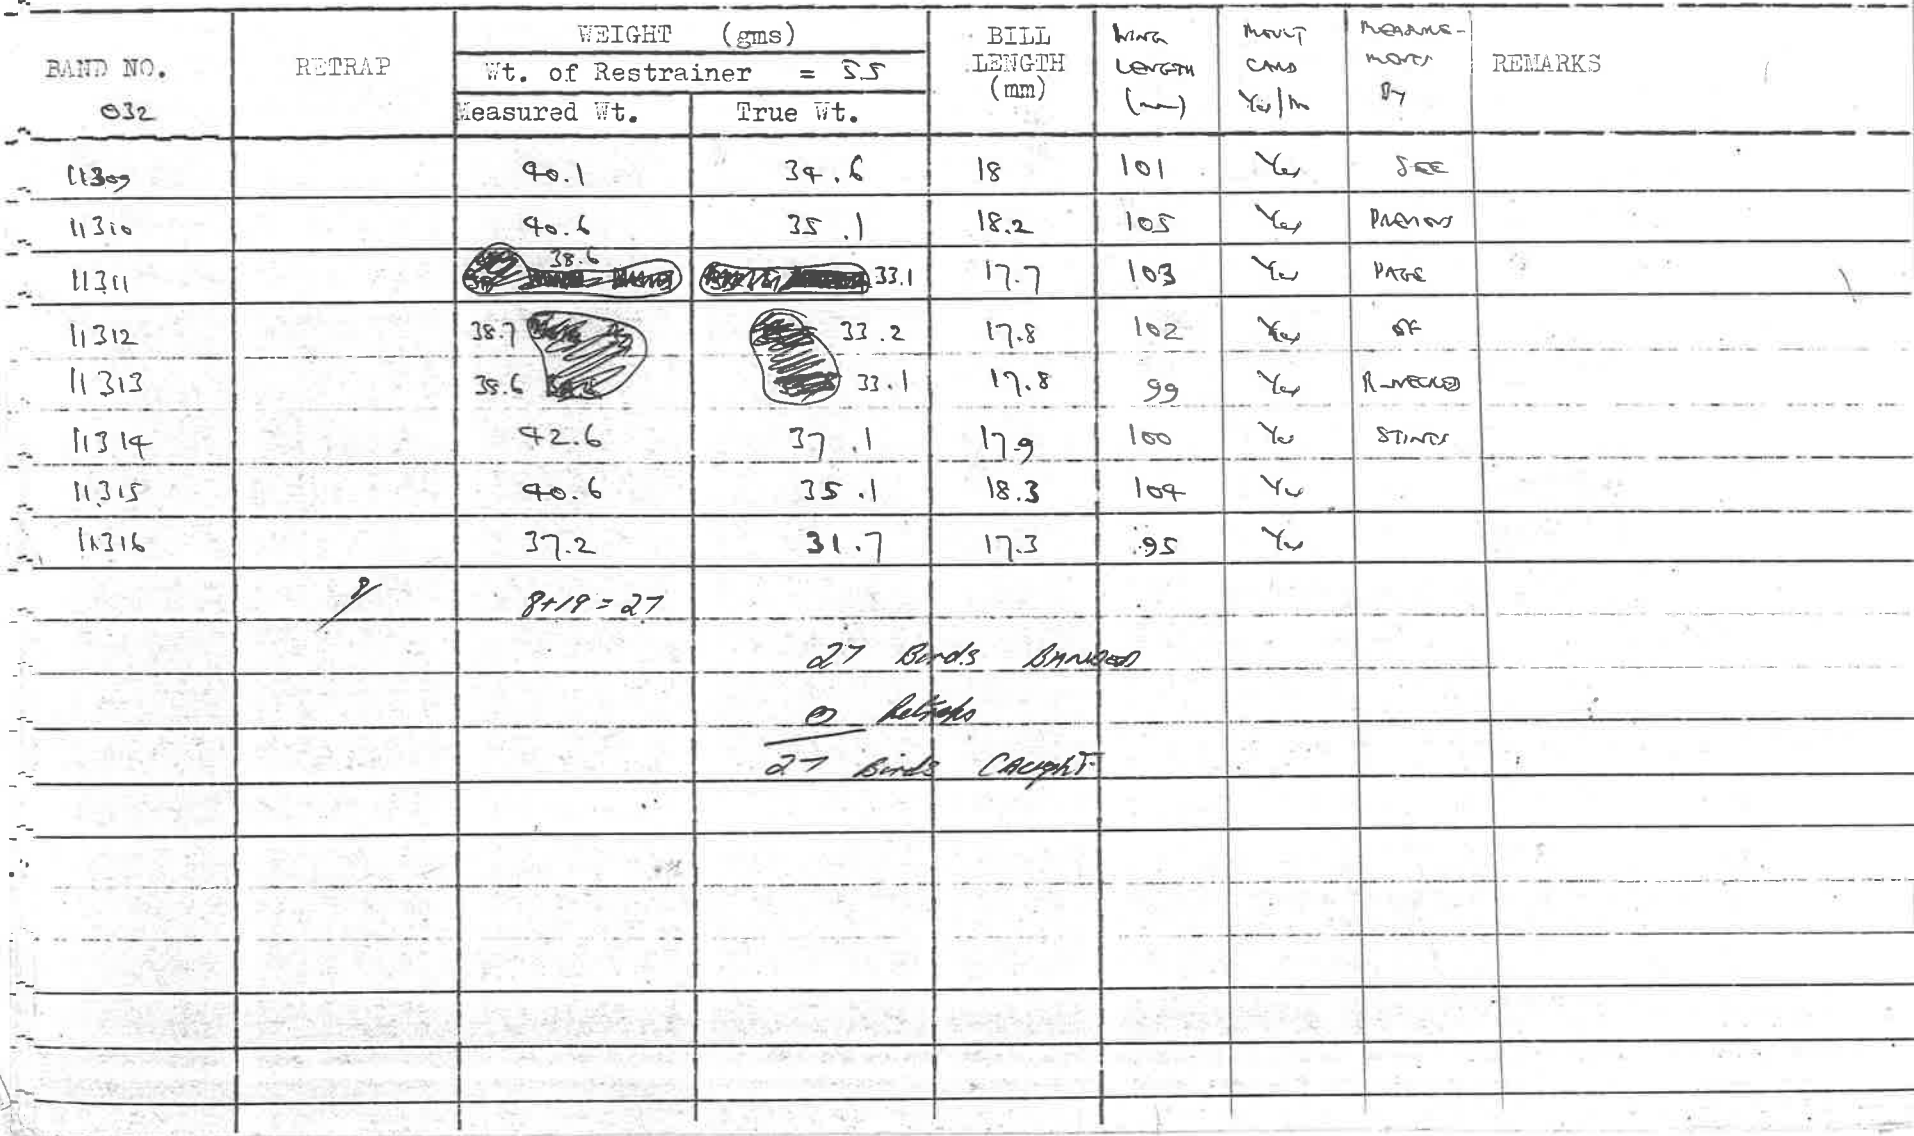 BAND NO. 032 RETRAP WEIGHT (gms) BILL LENGTH (mm) WING LENGTH (mm) MOULT CARD Yes/No MEASURE-MENTS BY REMARKS
Wt. of Restrainer = 55
Measured Wt. True Wt.
11309 40.1 34.6 18 101 Yes SEE
11310 40.6 35.1 18.2 105 Yes PREVIOUS
11311 38.6 33.1 17.7 103 Yes PAGE
11312 38.7 33.2 17.8 102 Yes OF
11313 38.6 33.1 17.8 99 Yes R-NECKED
11314 42.6 37.1 17.9 100 Yes STINTS
11315 40.6 35.1 18.3 104 Yes
11316 37.2 31.7 17.3 95 Yes
8+19 = 27
27 Birds BANDED
0 Retraps
27 Birds CAught